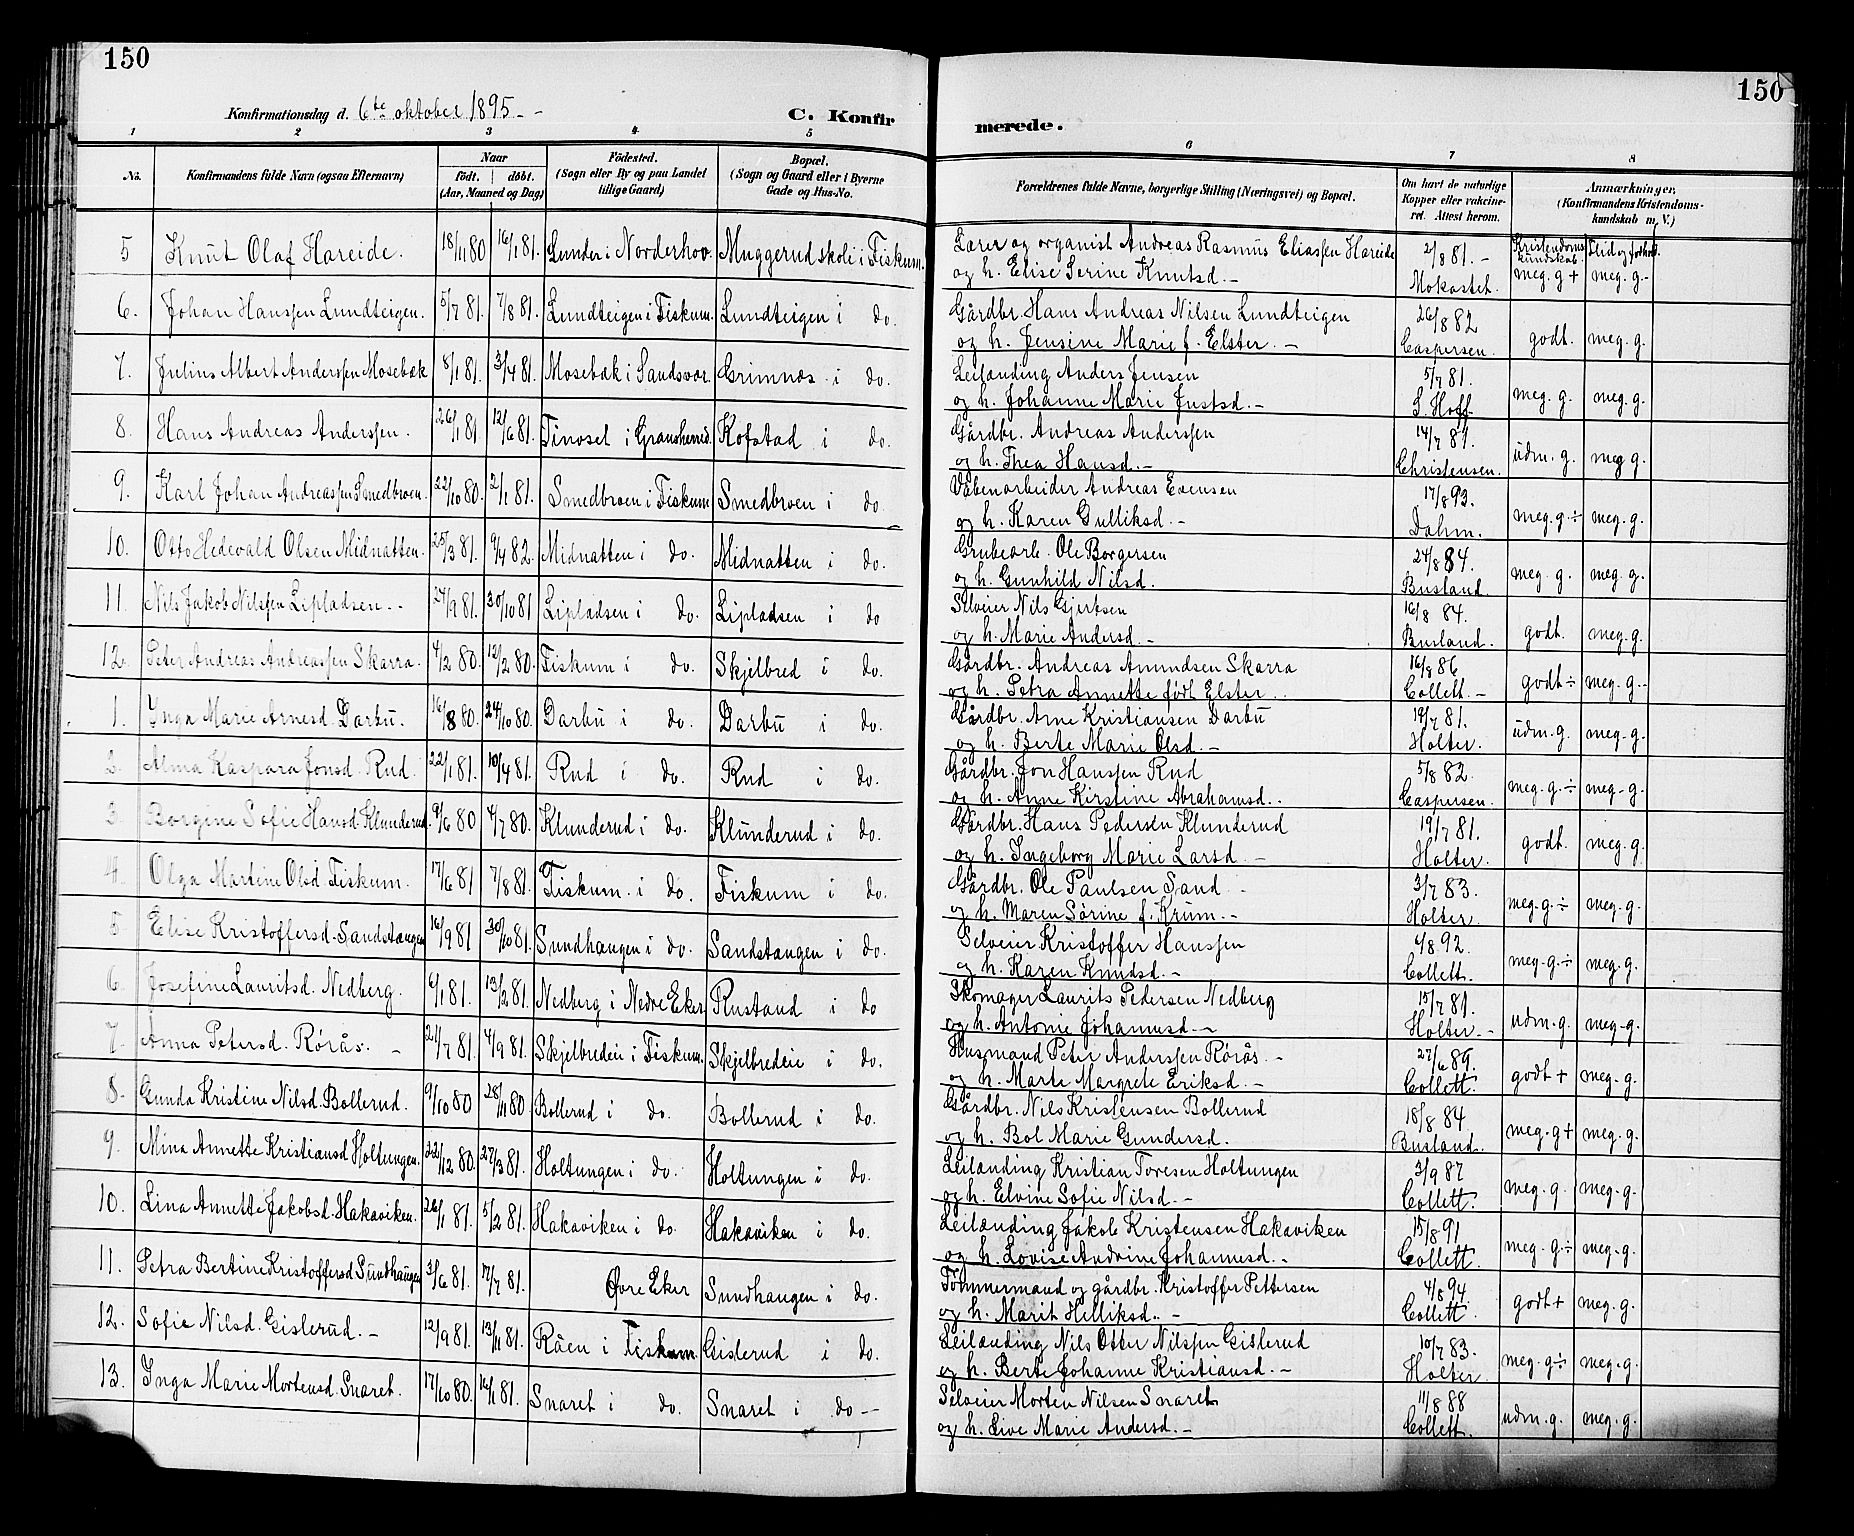 150
150
Konfirmationsdag d. 6te oktober 1895. -
C. Konfirmerede.
1 2 3 4 5 6 7 8
No. Konfirmandens fulde Navn (ogsaa Efternavn) Naar født. døbt. (Aar, Maaned og Dag) Fødested. (Sogn eller By og paa Landet tillige Gaard) Bopæl. (Sogn og Gaard eller i Byerne Gade og Hus-No. Forældrenes fulde Navne, borgerlige Stilling (Næringsvei) og Bopæl. Om havt de naturlige Kopper eller vakcineret. Attest herom. Anmærkninger. (Konfirmandens Kristendomskundskab m. V.)
Kristendomskundskab. Flid og forhold.
5 Knut Olaf Hareide. 18/11 80 16/1 81. Lunder i Norderhov. Muggerud skole i Fiskum. Lærer og organist Andreas Rasmus Eliassen Hareide 2/8 81. - meg. g + meg. g. -
og h. Elise Serine Knutsd. - Mokastet.
6. Johan Hanssen Lundteigen. 5/7 81. 7/8 81. Lundteigen i Fiskum. Lundteigen i do. Gårdbr. Hans Andreas Nilsen Lundteigen 26/8 82 godt. meg. g.
og h. Jensine Marie f. Elster. - Caspersen.
7. Julius Albert Anderssen Mosebæk 8/1 81. 3/4 81. Mosebæk i Sandsvær. Grimnæs i do. Leilænding Anders Jensen 5/7 81. meg. g. meg. g.
og h. Johanne Marie Justsd. - S. Hoff
8. Hans Andreas Anderssen. 26/1 81 12/6 81. Tinoset i Gransherred. Kofstad i do. Gårdbr. Andreas Anderssen 14/7 81. udm. g. meg g.
og h. Thea Hansd. - Christensen.
9. Karl Johan Andreassen Smedbroen. 22/10 80. 2/1 81. Smedbroen i Fiskum Smedbroen i do. Våbenarbeider Andreas Evensen 17/8 93. meg. g. ÷ meg. g.
og h. Karen Gulliksd. - Dahm.
10. Otto Hedevald Olsen Midnatten. 25/3 81. 9/4 82. Midnatten i do. Midnatten i do. Grubearb. Ole Borgersen 24/8 84. meg. g. meg. g.
og h. Gunhild Nilsd. Busland
11. Nils Jakob Nilssen Lipladsen. - 27/9 81. 30/10 81 Lipladsen i do. Lipladsen i do Selveier Nils Gjertsen 16/8 84. godt. meg. g.
og h. Marie Andersd. - Busland.
12. Peter Andreas Andreassen Skarra. 4/2 80. 12/2 80. Fiskum i do. Skjelbred i do. Gårdbr. Andreas Amundsen Skarra 16/8 86 godt ÷ meg. g. -
og h. Petra Annette født Elster. Collett. -
1. Inga Marie Arnesd. Darbu. 16/8 80. 24/10 80. Darbu i do. Darbu i do. Gårdbr. Arne Kristiansen Darbu 19/7 81. udm. g. meg. g.
og h. Berte Marie Olsd. - Holter.
2. Alma Kaspara Jonsd. Rud. 22/1 81. 10/4 81. Rud i do. Rud i do. Gårdbr. Jon Hanssen Rud 5/8 82. meg. g. ÷ meg. g.
og h. Anne Kirstine Abrahamsd. Caspersen.
3. Borgine Sofie Hansd. Klunderud. 9/6 80 4/7 80. Klunderud i do. Klunderud i do. Gårdbr. Hans Pedersen Klunderud 19/7 81. godt. meg. g.
og h. Ingeborg Marie Larsd. - Holter.
4. Olga Martine Olsd. Fiskum. 17/6 81 7/8 81. Fiskum. i do. Fiskum i do. Gårdbr. Ole Paulsen Sand - 3/7 83. meg. g. ÷ meg. g.
og h. Maren Sørine f. Krum. - Holter.
5 Elise Kristoffersd. Sandstangen 16/9 81 30/10 81. Sundhaugen i do. Sandstangen i do. Selveier Kristoffer Hanssen 4/8 92. meg. g. ÷ meg. g.
og h. Karen Knudsd. - Collett.
6. Josefine Lauritsd. Nedberg. 6/1 81. 13/2 81. Nedberg i Nedre Eker Rustand i do Skomager Laurits Pedersen Nedberg 15/7 81. udm. g. meg. g.
og h. Antonie Johannesd. - Holter. -
7. Anna Petersd. Rørås. - 21/7 81. 4/9 81. Skjelbredeie i Fiskum. Skjelbredeie i do. Husmand Peter Anderssen Rørås. - 27/6 89. godt + meg. g.
og h. Marte Margrete Eriksd. - Collett.
8. Gunda Kristine Nilsd. Bollerud. 9/10 80 28/11 80 Bollerud i do. Bollerud i do. Gårdbr. Nils Kristensen Bollerud 18/8 84 meg. g + meg. g.
og h. Bol Marie Gundersd. Busland.
9. Mina Annette Kristiansd Holtungen. 22/12 80. 27/3 81. Holtungen i do. Holtungen i do. Leilænding Kristian Toresen Holtungen 3/9 87 meg. g. meg. g.
og h. Elvine Sofie Nilsd. - Collett.
10. Lina Annette Jakobsd. Hakaviken. 26/1 81. 5/2 81. Hakaviken i do. Hakaviken i do. Leilænding Jakob Kristensen Hakaviken 15/8 91 meg. g. ÷ meg. g.
og h. Lovise Andrine Johannesd. - Collett.
11. Petra Bertine Kristoffersd. Sundhaugen 3/6 81. 17/7 81. Øvre Eker Sundhaugen i do. Tømmermand og gårdbr. Kristoffer Pettersen 4/8 94. godt + meg. g.
og h. Marit Helliksd. - Collett.
12. Sofie Nilsd. Gislerud. - 12/9 81. 13/11 81. Råen i Fiskum. Gislerud i do. Leilænding Nils Otter Nilssen Gislerud 10/7 83. meg. g ÷ meg. g.
og h. Berte Johanne Kristiansd. - Holter.
13. Inga Marie Mortensd. Snaret. 17/10 80. 16/1 81. Snaret i do. Snaret i do - - Selveier Morten Nilsen Snaret 11/8 88 udm. g. meg. g.
og h. Live Marie Andersd. - Collett.